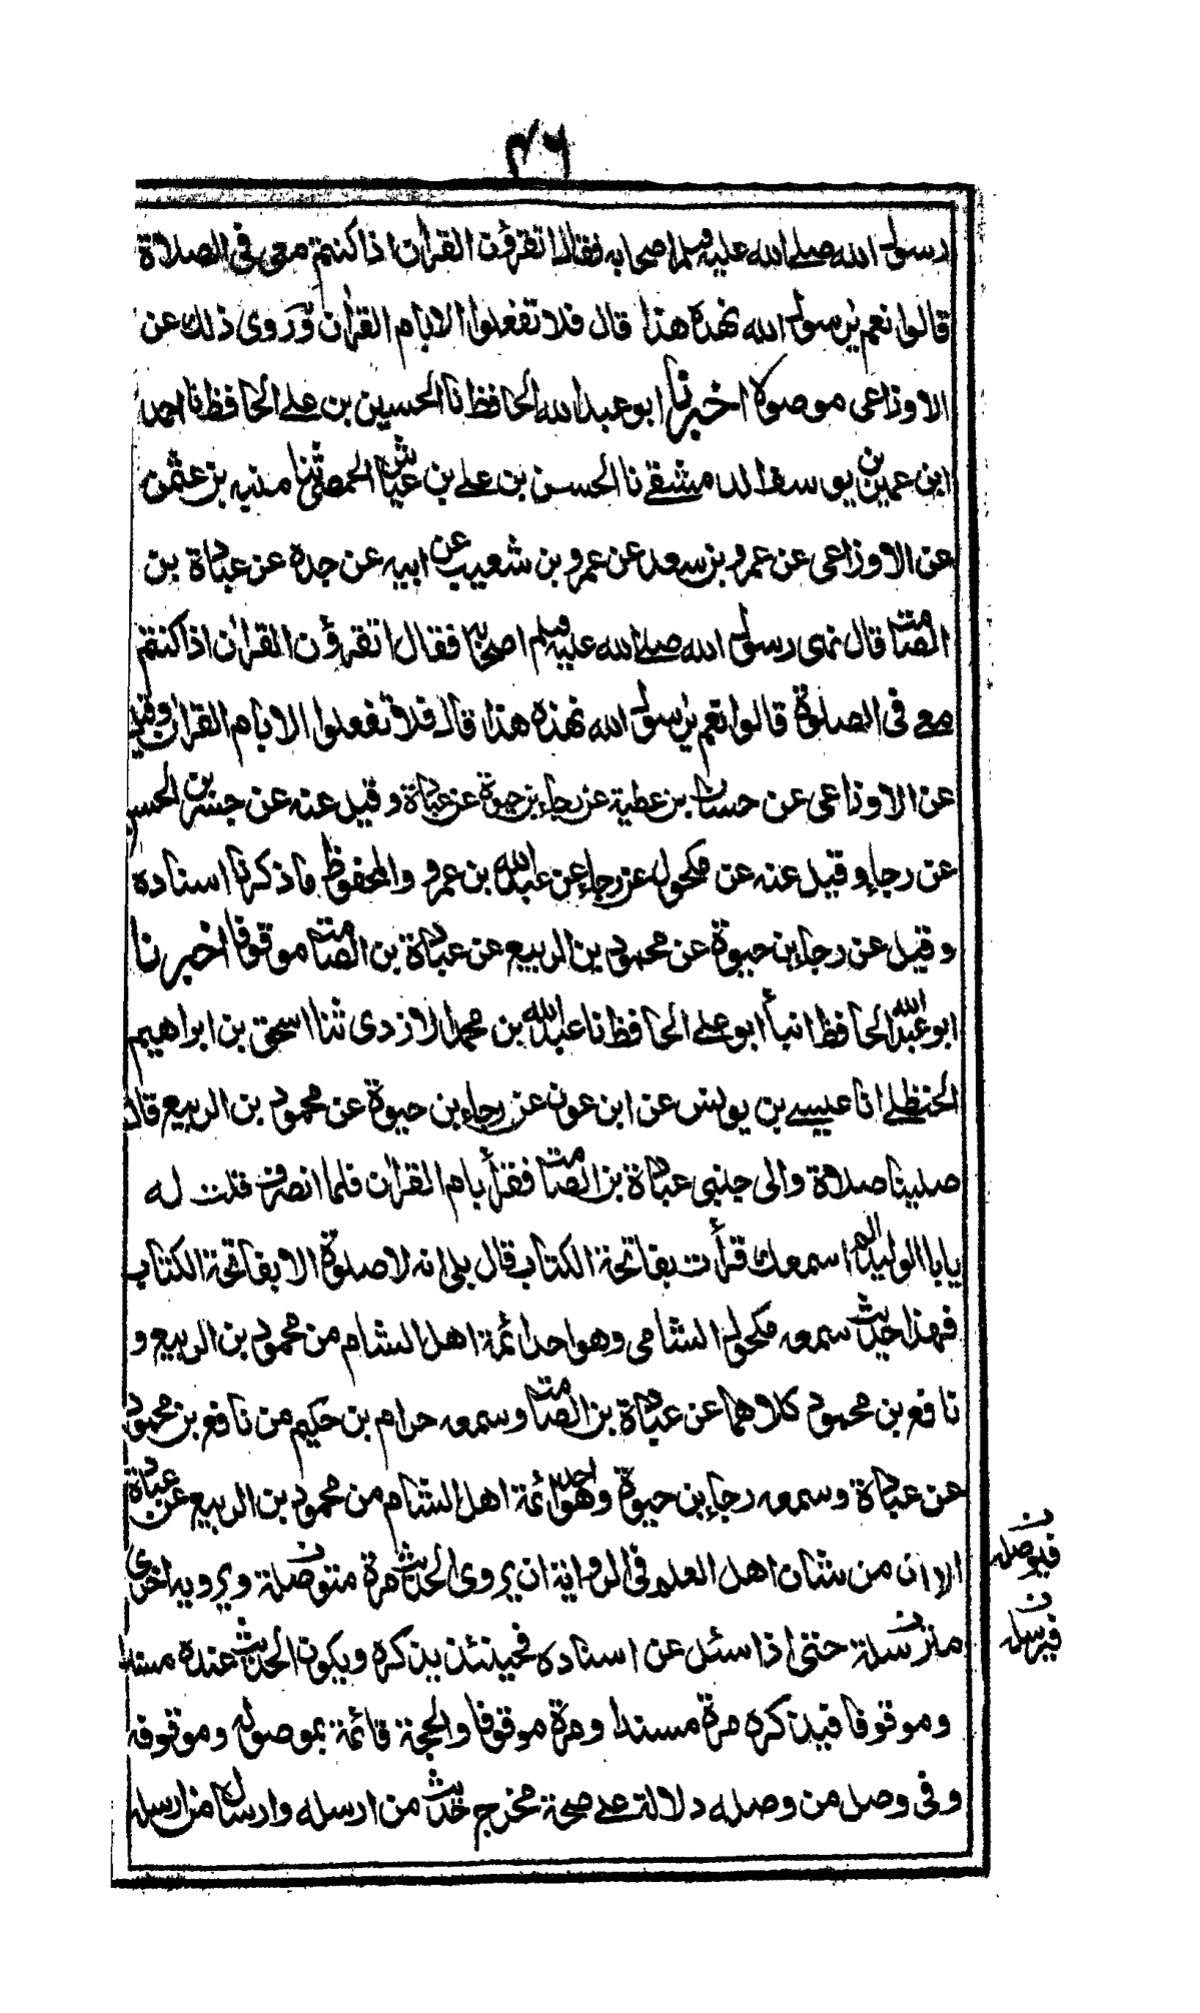 ٤٦
رسول الله صلى الله عليه وسلم اصحابه فقال اتقرؤن القرآن اذا كنتم معي في الصلاة
قالوا نعم يرسول الله نهذه هذا قال فلا تفعلوا الا بام القرآن وروى ذلك عن
الاوزاعى موصولا اخبرنا ابو عبد الله الحافظ نا الحسين بن على الحافظ نا احمد
ابن عمير بن يوسف الدمشقى نا الحسن بن على بن عياش الحمصى ثنا منبه بن عثمن
عن الاوزاعى عن عمرو بن سعد عن عمرو بن شعيب عن ابيه عن جده عن عبادة بن
الصامت قال نهى رسول الله صلى الله عليه وسلم اصحابه فقال اتقرؤن القرآن اذا كنتم
معى فى الصلوة قالوا نعم يرسول الله نهذه هذا قال فلا تفعلوا الا بام القرآن وقيل
عن الاوزاعى عن حسان بن عطية عن رجاء بن حيوة عن عبادة وقيل عنه عن جسر بن الحسن
عن رجاء وقيل عنه عن مكحول عن رجاء عن عبد الله بن عمرو والمحفوظ ما ذكرنا اسناده
وقيل عن رجاء بن حيوة عن محمود بن الربيع عن عبادة بن الصامت موقوفا اخبرنا
ابو عبد الله الحافظ انبأ ابو على الحافظ نا عبد الله بن محمد الازدى ثنا اسحق بن ابراهيم
الحنظلى انا عيسى بن يونس عن ابن عون عن رجاء بن حيوة عن محمود بن الربيع قال
صلينا صلاة والى جنبى عبادة بن الصامت فقرأ بام القرآن فلما انصرف قلت له
يابا الوليد الم اسمعك قرأت بفاتحة الكتاب قال بلى انه لا صلوة الا بفاتحة الكتاب
فهذا حديث سمعه مكحول الشامى وهو احد ائمة اهل الشام من محمود بن الربيع و
نافع بن محمود كلاهما عن عبادة بن الصامت وسمعه حرام بن حكيم من نافع بن محمود
عن عبادة وسمعه رجاء بن حيوة وهو احد ائمة اهل الشام من محمود بن الربيع عن عبادة
الا ان من شان اهل العلم فى الرواية ان يروى الحديث مرة فيوصله ويرويه اخرى
فيرسله حتى اذا سئل عن اسناده فحينئذ يذكره ويكون الحديث عنده مسندا
وموقوفا فيذكره مرة مسندا ومرة موقوفا والحجة قائمة بموصوله وموقوفه
وفى وصل من وصله دلالة على صحة مخرج حديث من ارسله وارسال من ارسله
فيوصله ن
فيرسله ن